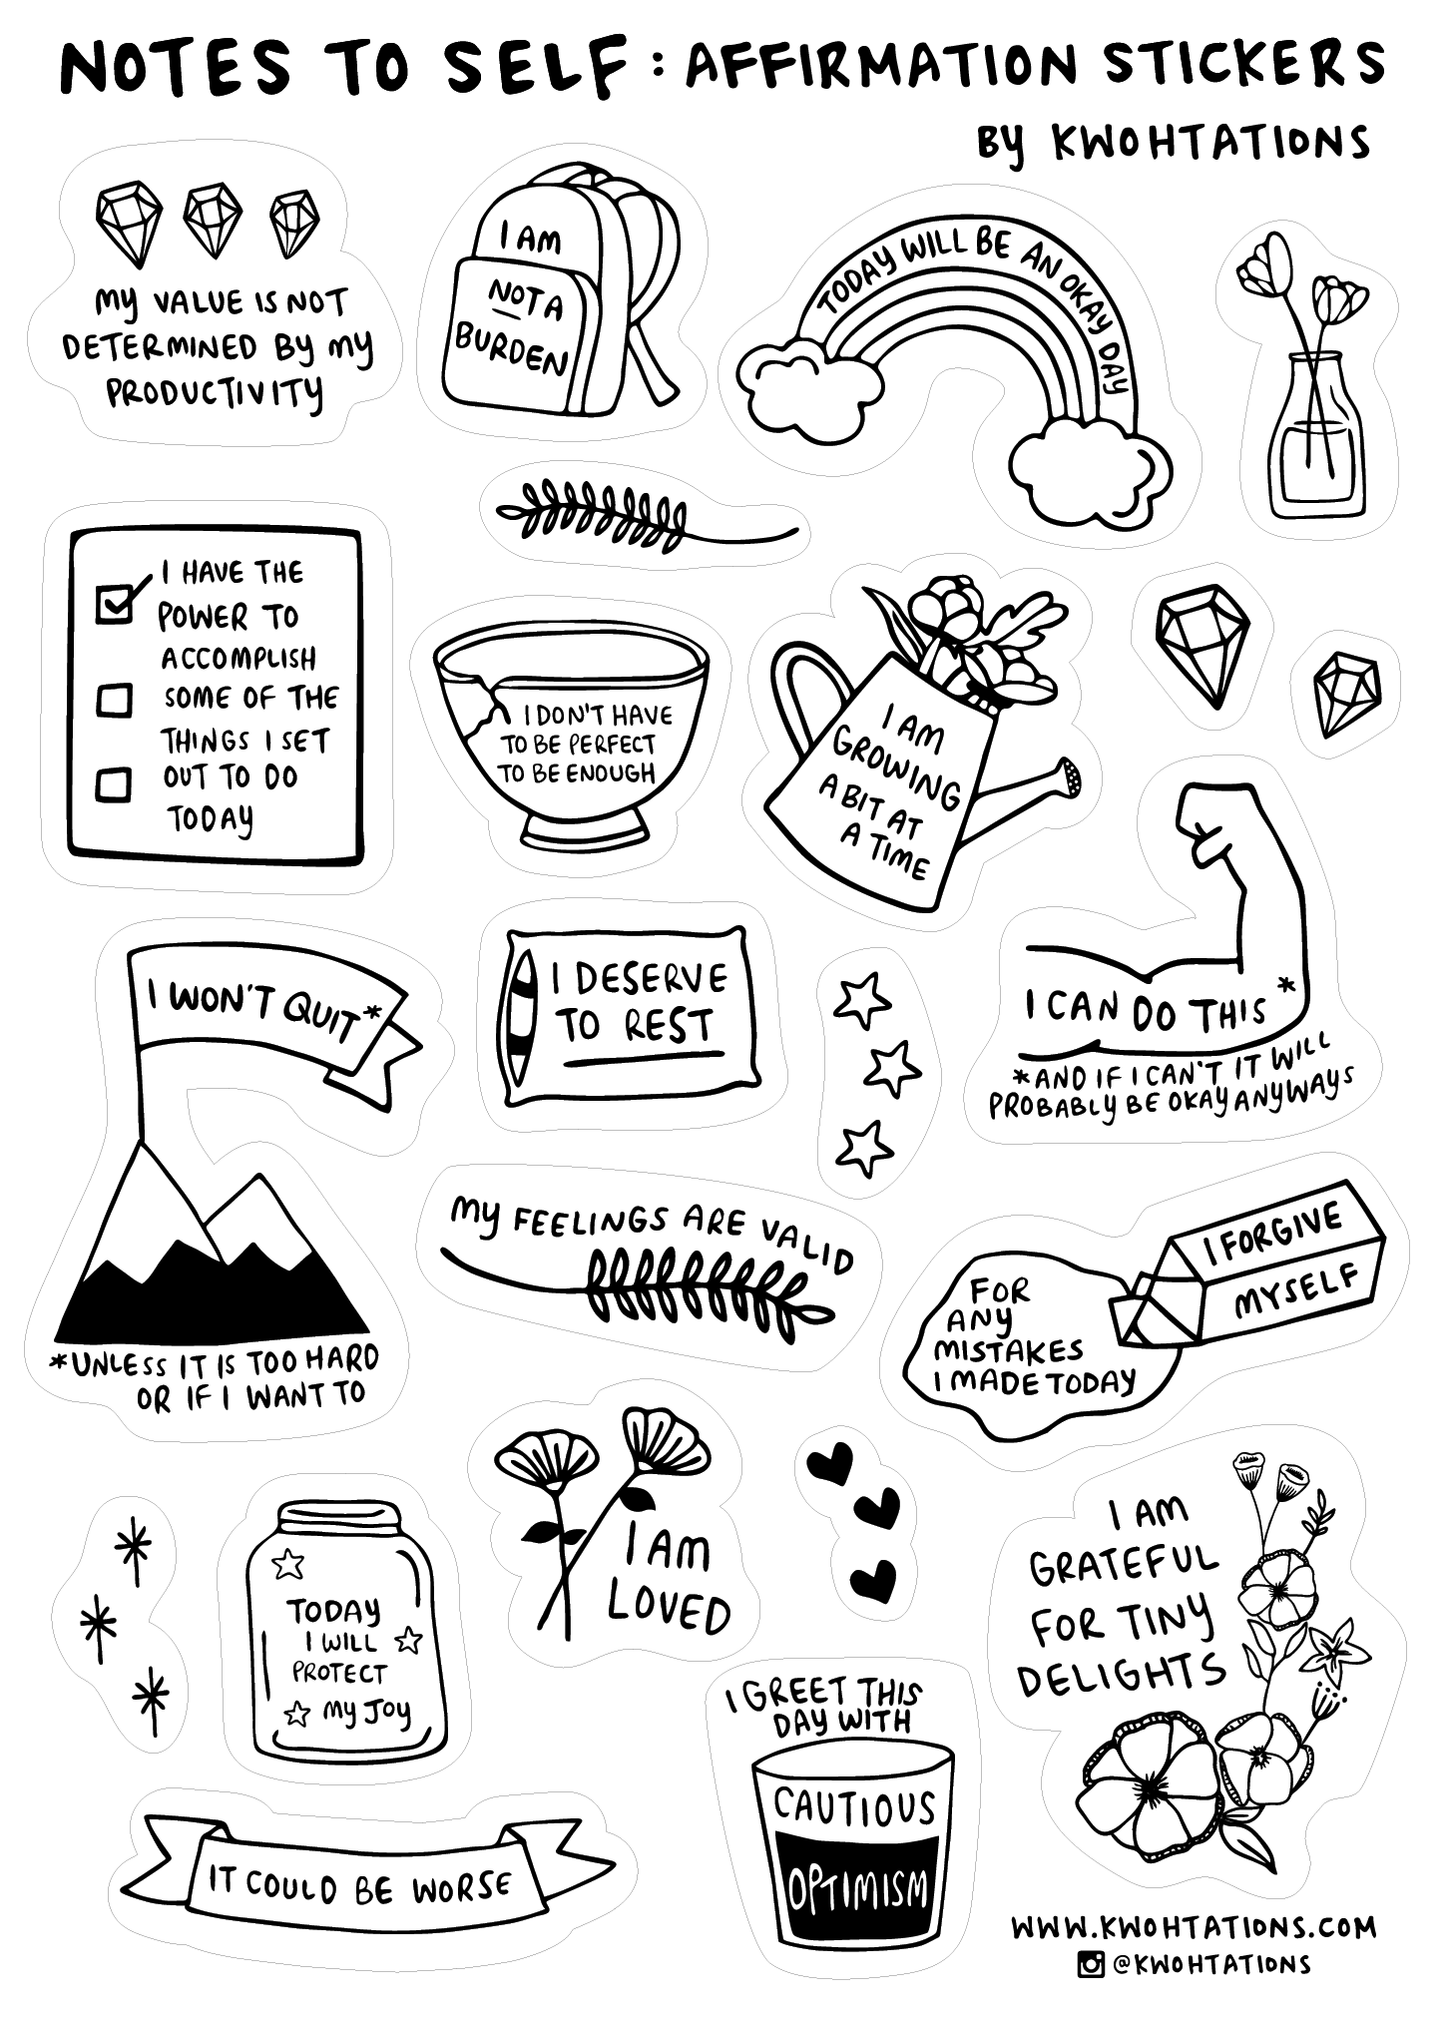 NOTES TO SELF : AFFIRMATION STICKERS
BY KWOHTATIONS
MY VALUE IS NOT
DETERMINED BY MY
PRODUCTIVITY
I AM
NOT A
BURDEN
TODAY WILL BE AN OKAY DAY
I HAVE THE
POWER TO
ACCOMPLISH
SOME OF THE
THINGS I SET
OUT TO DO
TODAY
I DON'T HAVE
TO BE PERFECT
TO BE ENOUGH
I AM
GROWING
A BIT AT
A TIME
I CAN DO THIS *
*AND IF I CAN'T IT WILL
PROBABLY BE OKAY ANYWAYS
I WON'T QUIT*
*UNLESS IT IS TOO HARD
OR IF I WANT TO
I DESERVE
TO REST
MY FEELINGS ARE VALID
I FORGIVE
MYSELF
FOR
ANY
MISTAKES
I MADE TODAY
I AM
LOVED
TODAY
I WILL
PROTECT
MY JOY
I AM
GRATEFUL
FOR TINY
DELIGHTS
I GREET THIS
DAY WITH
CAUTIOUS
OPTIMISM
IT COULD BE WORSE
WWW.KWOHTATIONS.COM
@KWOHTATIONS